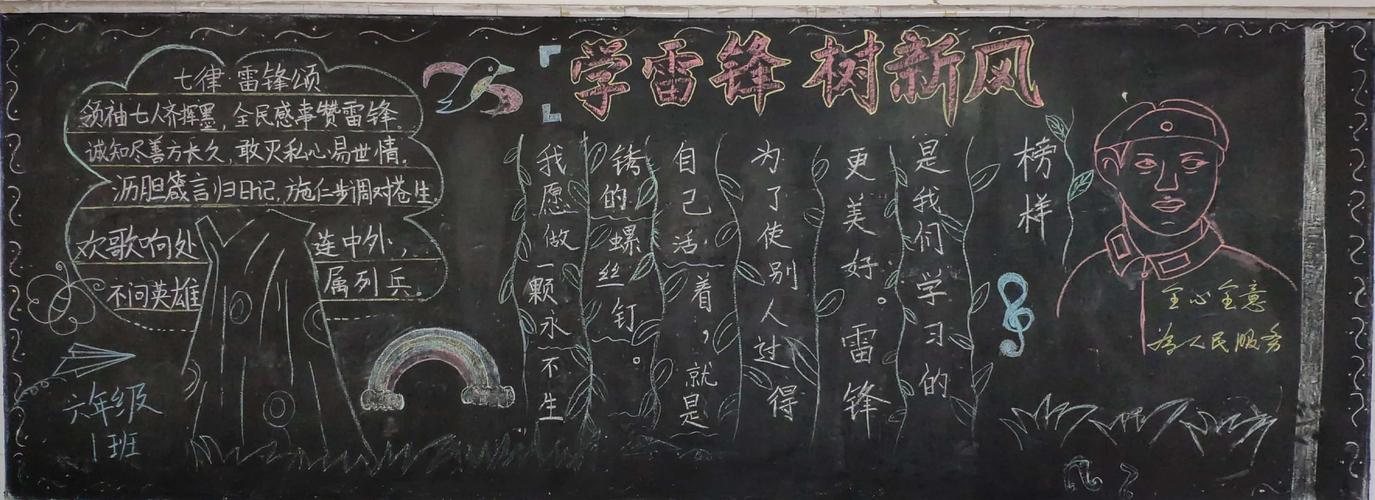 学雷锋 树新风
七律 雷锋颂
领袖七人齐挥墨，全民感事赞雷锋。
诚知尽善方长久，敢灭私心易世情。
沥胆箴言归日记，施仁步调对苍生。
欢歌响处 莲中外，
不问英雄 属列兵。
六年级
1班
我愿做一颗永不生
锈的螺丝钉。
自己活着，就是
为了使别人过得
更美好。雷锋
是我们学习的
榜样
全心全意
为人民服务